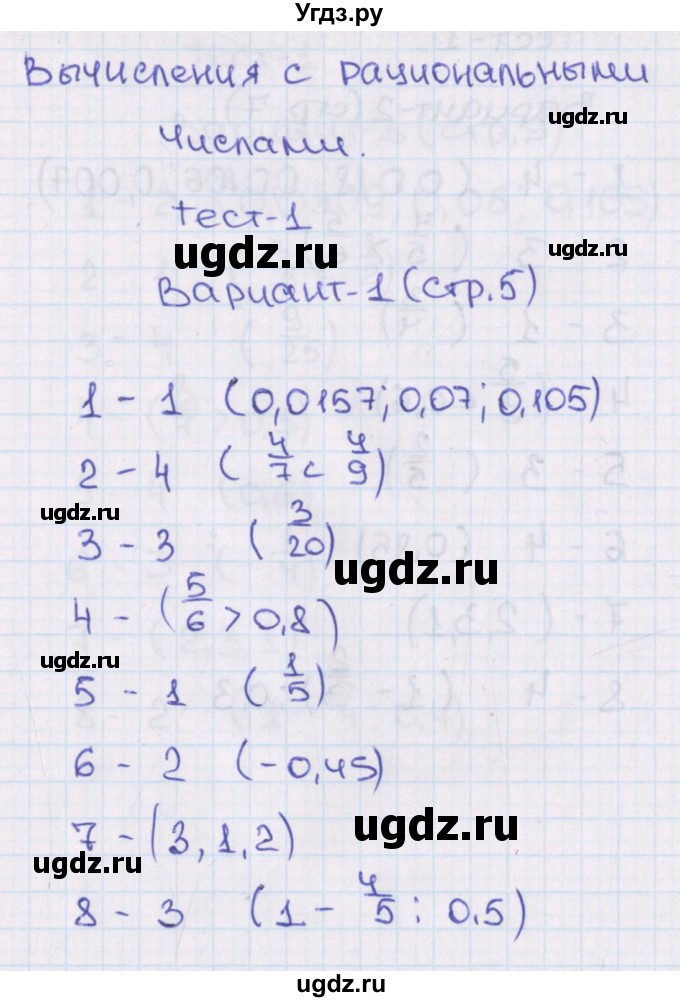 Угдз.ру
Вычисления с рациональными
ugdz.ru
числами.
тест-1
ugdz.ru
ugdz.ru
Вариант-1 (стр.5)
1 - 1 (0,0157; 0,07; 0,105)
2 - 4 ( 4/7 < 4/9 )
ugdz.ru
3 - 3 ( 3/20 )
ugdz.ru
4 - ( 5/6 > 0,8 )
ugdz.ru
5 - 1 ( 1/5 )
6 - 2 (-0,45)
ugdz.ru
7 - (3, 1, 2)
ugdz.ru
8 - 3 (1 - 4/5 : 0.5)
ugdz.ru